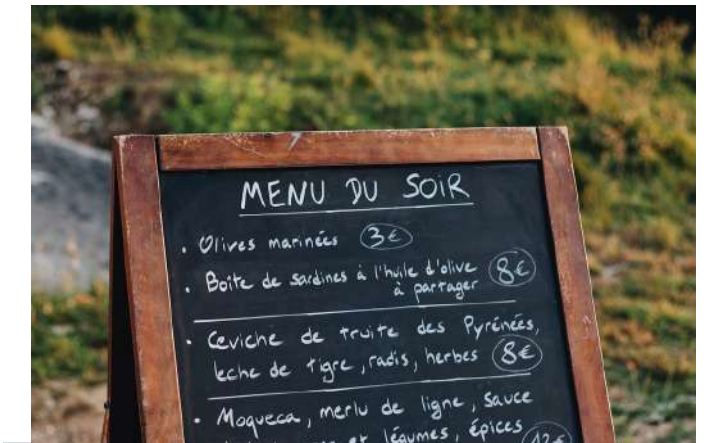 MENU DU SOIR
• Olives marinées 3€
• Boîte de sardines à l'huile d'olive 8€
à partager
• Ceviche de truite des Pyrénées,
leche de tigre, radis, herbes 8€
• Moqueca, merlu de ligne, sauce
et légumes, épices 12€